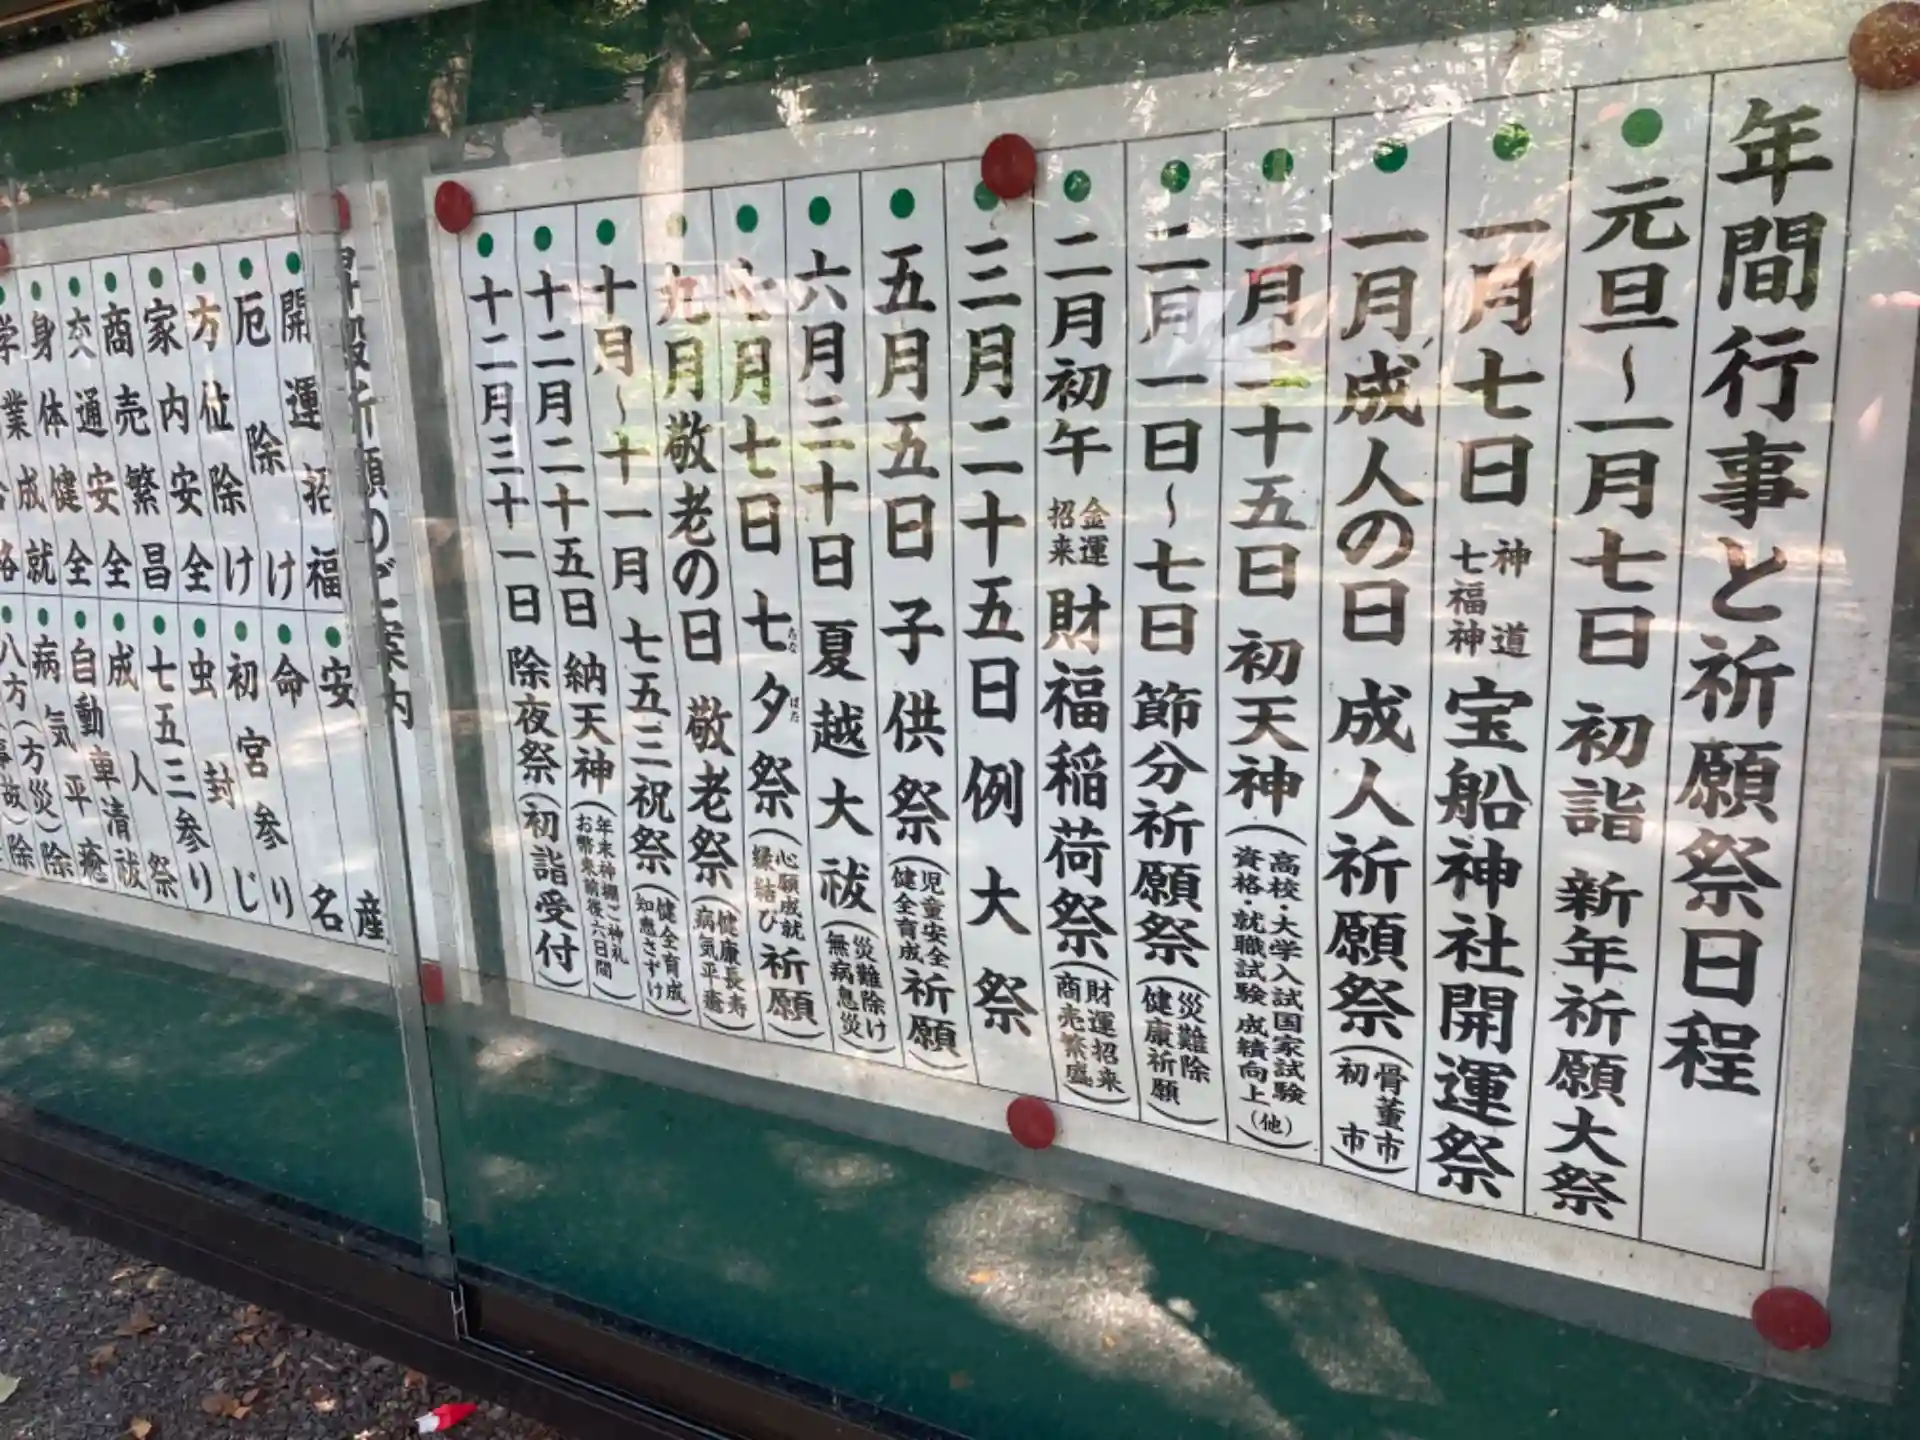 年間行事と祈願祭日程
元旦～一月七日 初詣 新年祈願大祭
一月七日 神道七福神 宝船神社開運祭
一月成人の日 成人祈願祭（骨董市初市）
一月二十五日 初天神（高校・大学入試国家試験資格・就職試験成績向上（他））
二月一日～七日 節分祈願祭（災難除健康祈願）
二月初午 金運招来 財福稲荷祭（財運招来商売繁盛）
三月二十五日 例大祭
五月五日 子供祭（児童安全健全育成）祈願
六月三十日 夏越大祓（災難除け無病息災）
七月七日 七夕祭（心願成就縁結び）祈願
たな ばた
九月敬老の日 敬老祭（健康長寿病気平癒）
十月～十一月 七五三祝祭（健全育成知恵さずけ）
十二月二十五日 納天神（年末神棚ご神札お幣束前後六日間）
十二月三十一日 除夜祭（初詣受付）
祈願のご案内
開運招福
厄除け
方位除け
家内安全
商売繁昌
交通安全
身体健全
学業成就
安産
命名
初宮参り
虫封じ
七五三参り
成人祭
自動車清祓
病気平癒
八方（方災）除